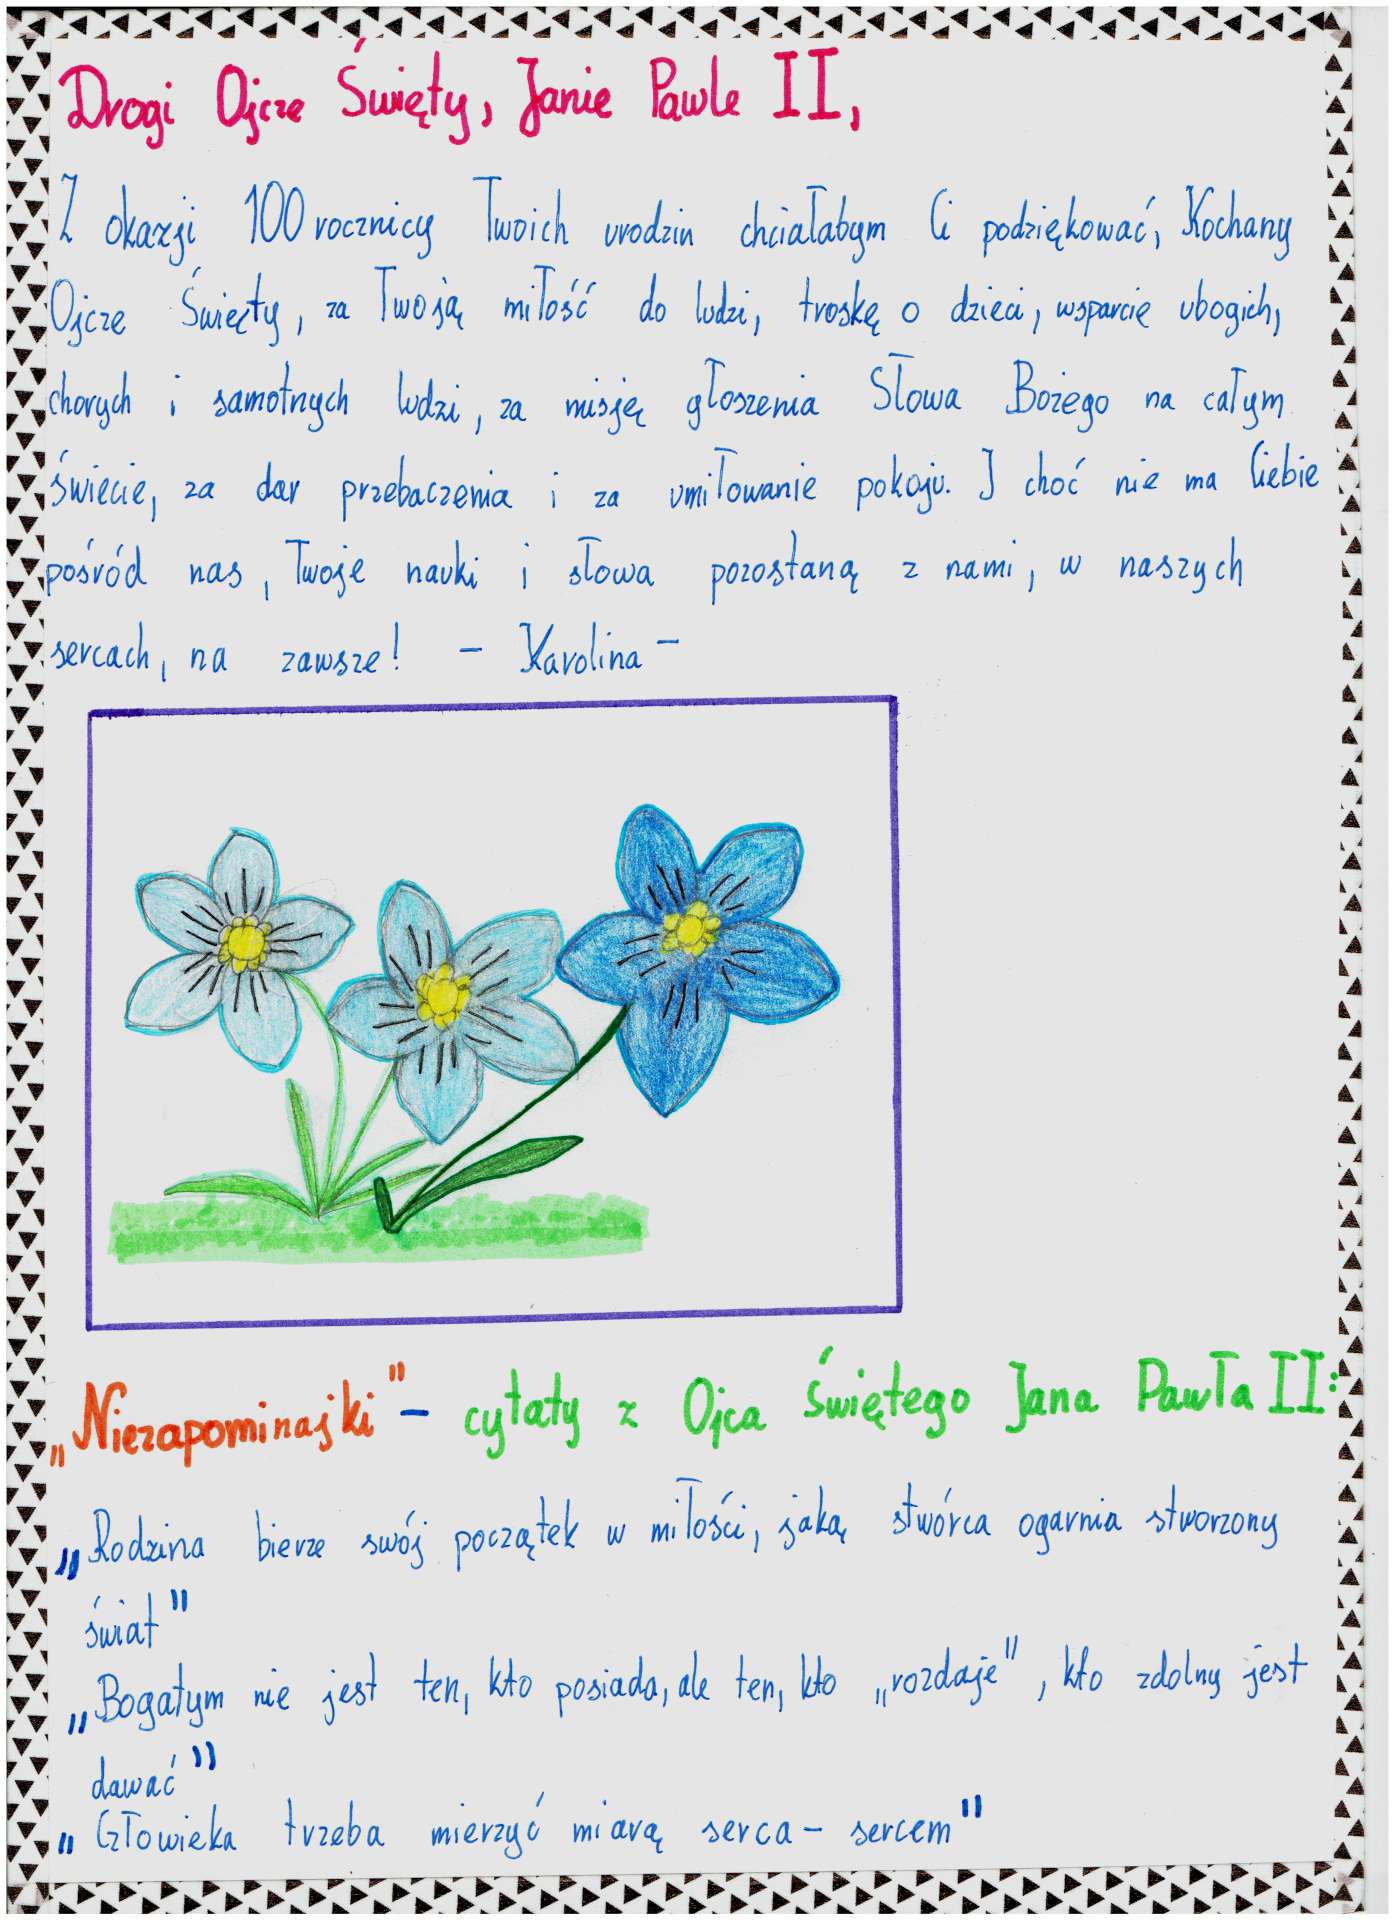 Drogi Ojcze Święty, Janie Pawle II,
Z okazji 100 rocznicy Twoich urodzin chciałabym Ci podziękować, Kochany
Ojcze Święty, za Twoją miłość do ludzi, troskę o dzieci, wsparcie ubogich,
chorych i samotnych ludzi, za misję głoszenia Słowa Bożego na całym
świecie, za dar przebaczenia i za umiłowanie pokoju. I choć nie ma Ciebie
pośród nas, Twoje nauki i słowa pozostaną z nami, w naszych
sercach, na zawsze! - Karolina -
„Niezapominajki" - cytaty z Ojca Świętego Jana Pawła II:
„Rodzina bierze swój początek w miłości, jaką stwórca ogarnia stworzony
świat"
„Bogatym nie jest ten, kto posiada, ale ten, kto „rozdaje", kto zdolny jest
dawać"
„Człowieka trzeba mierzyć miarą serca - sercem"